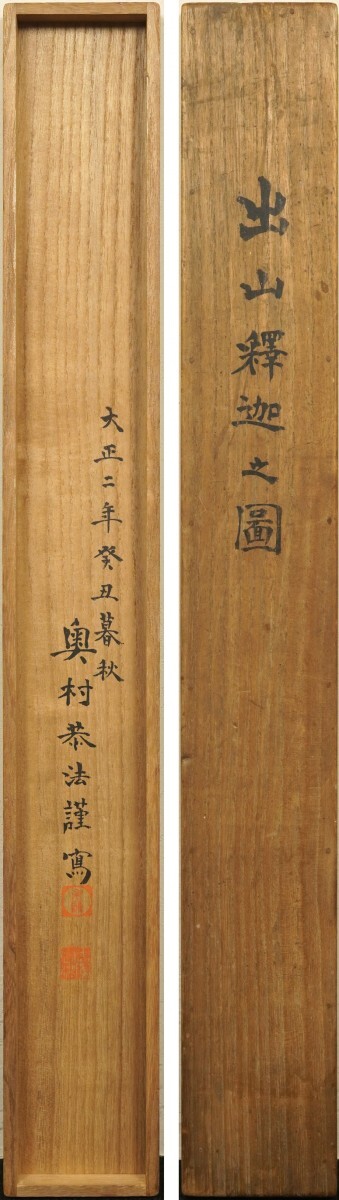 出山釋迦之圖
大正二年癸丑暮秋
奥村恭法謹寫